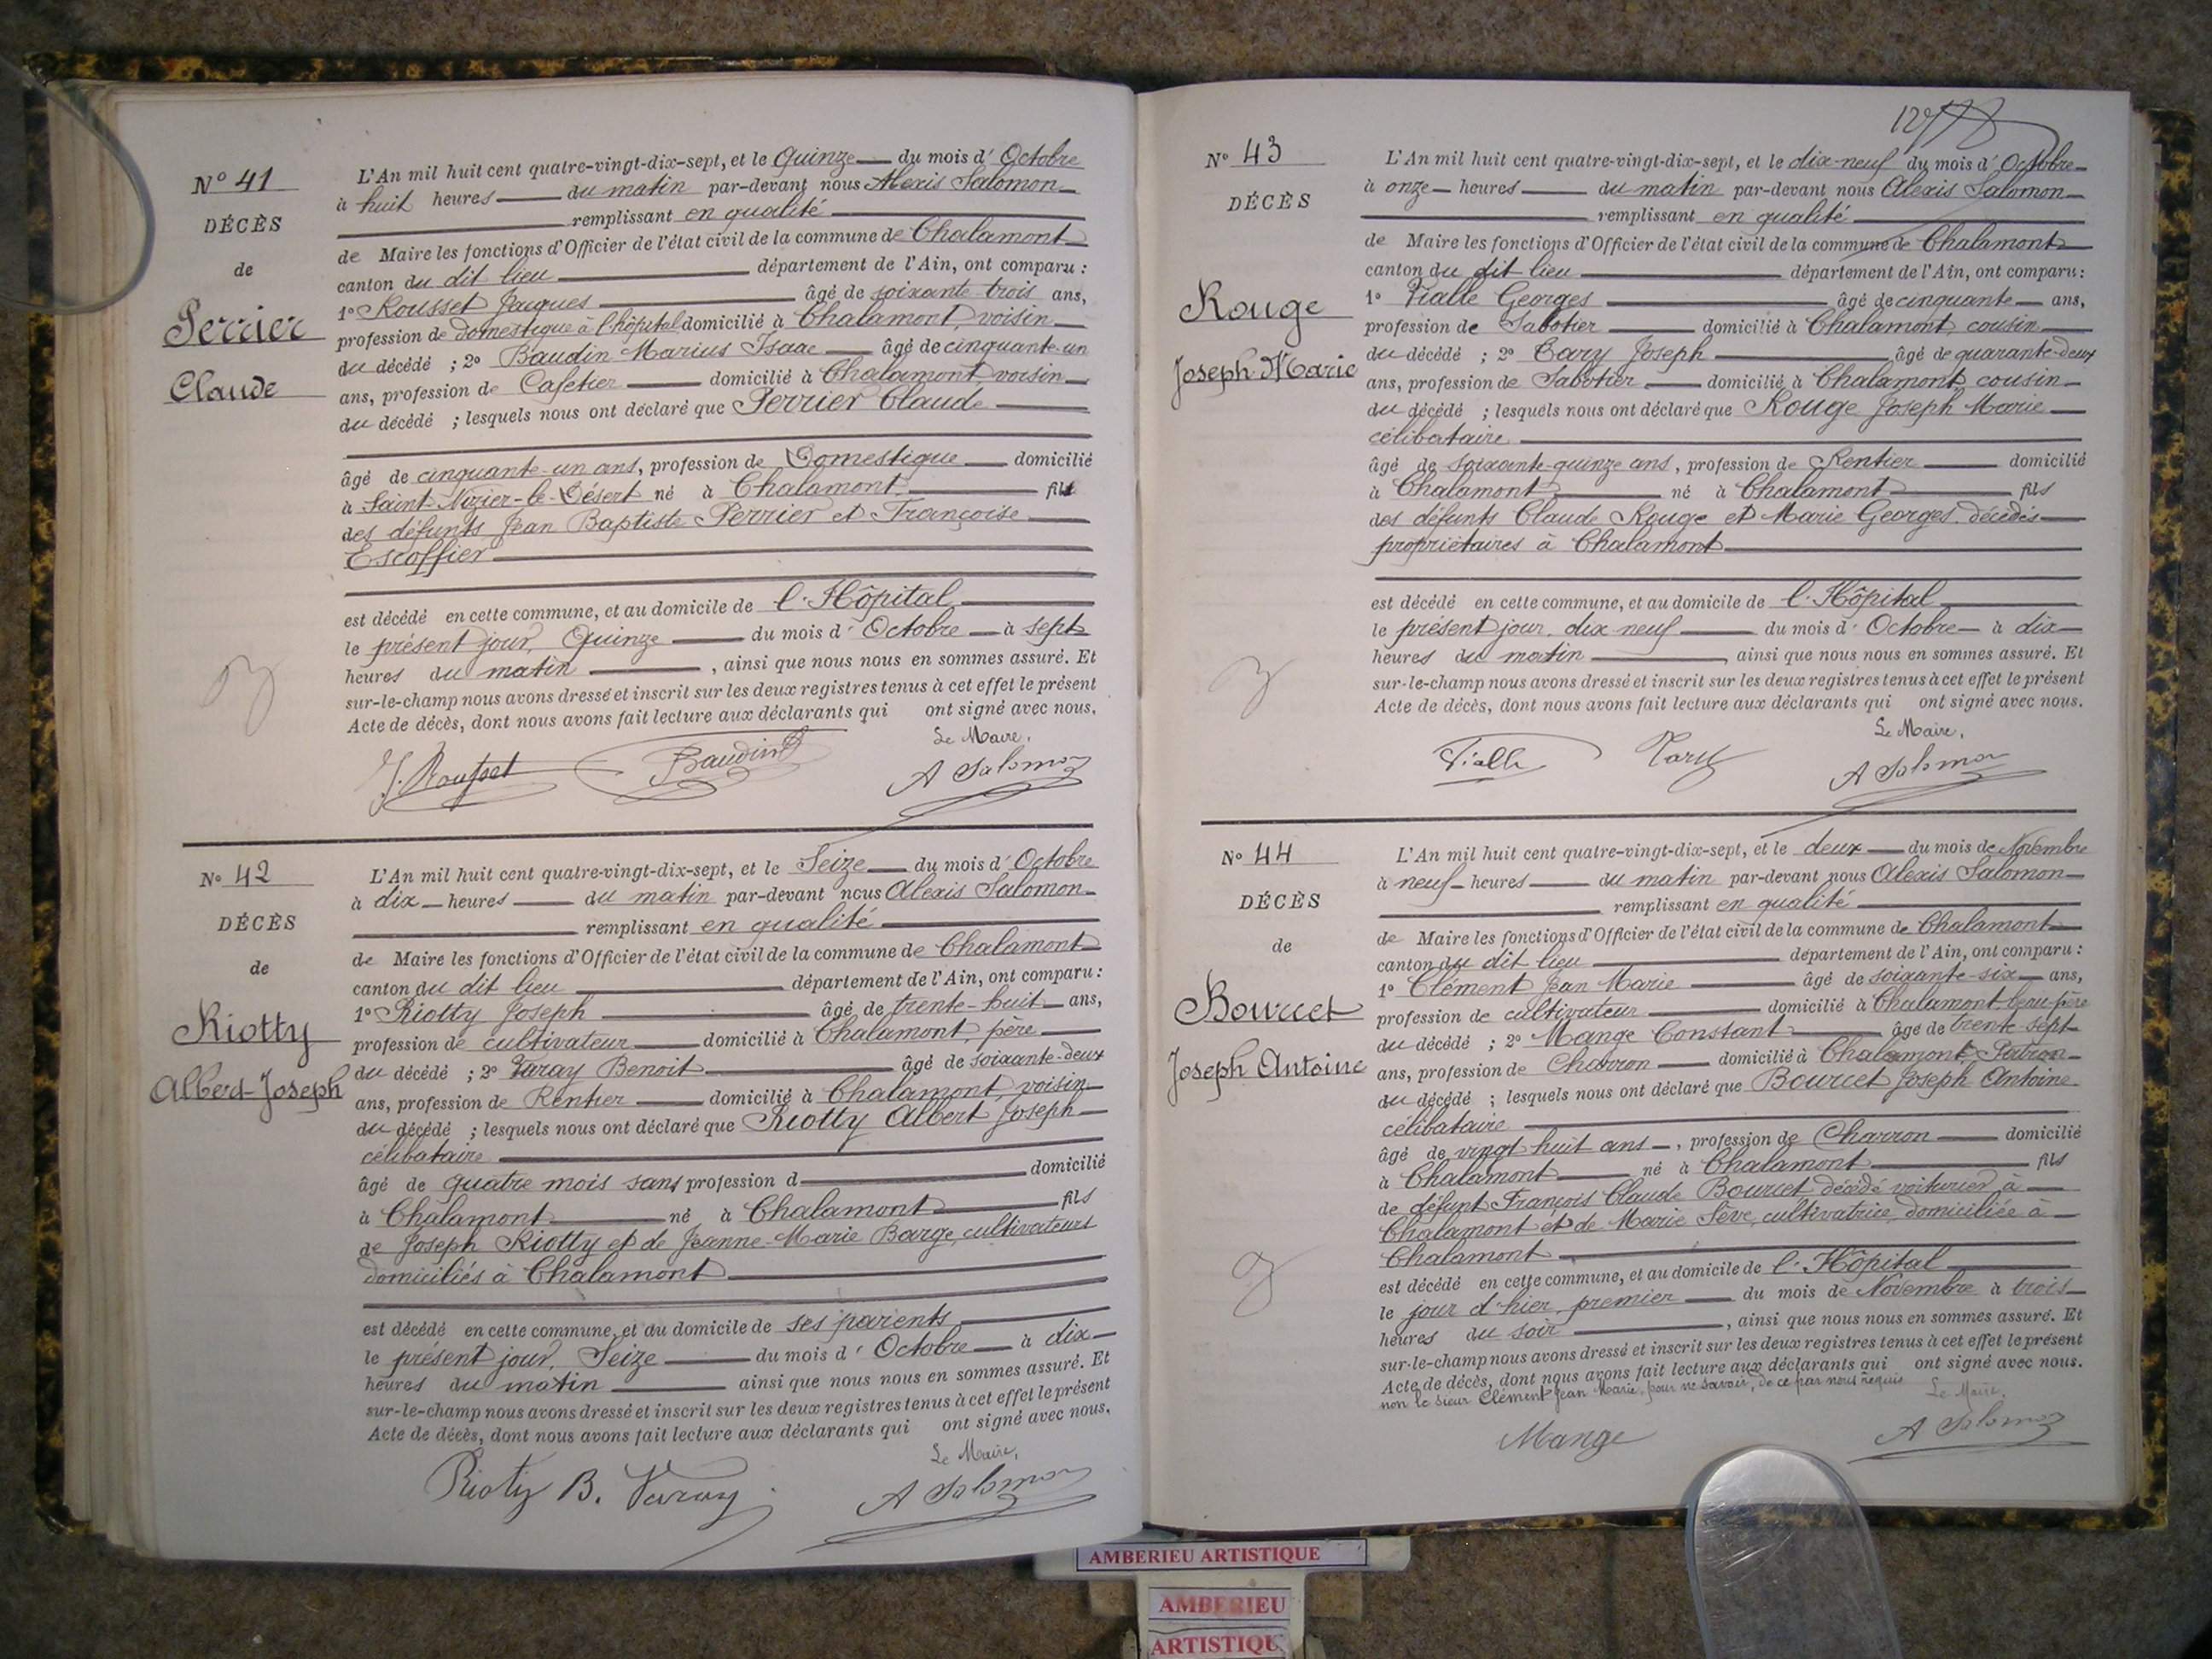 N° 41
DÉCÈS
de
Perrier
Claude
L'An mil huit cent quatre-vingt-dix-sept, et le Quinze du mois d'Octobre
à huit heures du matin par-devant nous Alexis Salomon
remplissant en qualité
de Maire les fonctions d'Officier de l'état civil de la commune de Chalamont
canton du dit lieu département de l'Ain, ont comparu :
1° Rousset Jaques âgé de soixante trois ans,
profession de domestique à l'hôpital domicilié à Chalamont, voisin
du décédé ; 2° Baudin Marius Isaac âgé de cinquante-un
ans, profession de Cafetier domicilié à Chalamont, voisin
du décédé ; lesquels nous ont déclaré que Perrier Claude
âgé de cinquante-un ans, profession de Domestique domicilié
à Saint-Nizier-le-Désert né à Chalamont fils
des défunts Jean Baptiste Perrier et Françoise
Escoffier
est décédé en cette commune, et au domicile de l'Hôpital
le présent jour, Quinze du mois d'Octobre à sept
heures du matin, ainsi que nous nous en sommes assuré. Et
sur-le-champ nous avons dressé et inscrit sur les deux registres tenus à cet effet le présent
Acte de décès, dont nous avons fait lecture aux déclarants qui ont signé avec nous.
Le Maire,
J. Rousset Baudin A Salomon
N° 42
DÉCÈS
de
Riotty
Albert-Joseph
L'An mil huit cent quatre-vingt-dix-sept, et le Seize du mois d'Octobre
à dix heures du matin par-devant nous Alexis Salomon
remplissant en qualité
de Maire les fonctions d'Officier de l'état civil de la commune de Chalamont
canton du dit lieu département de l'Ain, ont comparu :
1° Riotty Joseph âgé de trente-huit ans,
profession de cultivateur domicilié à Chalamont, père
du décédé ; 2° Varay Benoit âgé de soixante-deux
ans, profession de Rentier domicilié à Chalamont, voisin
du décédé ; lesquels nous ont déclaré que Riotty Albert Joseph
célibataire
âgé de quatre mois sans profession d domicilié
à Chalamont né à Chalamont fils
de Joseph Riotty et de Jeanne-Marie Barge, cultivateurs
domiciliés à Chalamont
est décédé en cette commune, et au domicile de ses parents
le présent jour, Seize du mois d'Octobre à dix
heures du matin ainsi que nous nous en sommes assuré. Et
sur-le-champ nous avons dressé et inscrit sur les deux registres tenus à cet effet le présent
Acte de décès, dont nous avons fait lecture aux déclarants qui ont signé avec nous.
Le Maire,
Riotty B. Varay A Salomon
N° 43
DÉCÈS
Rouge
Joseph Marie
L'An mil huit cent quatre-vingt-dix-sept, et le dix-neuf du mois d'Octobre
à onze heures du matin par-devant nous Alexis Salomon
remplissant en qualité
de Maire les fonctions d'Officier de l'état civil de la commune de Chalamont
canton du dit lieu département de l'Ain, ont comparu :
1° Vialle Georges âgé de cinquante ans,
profession de Sabotier domicilié à Chalamont, cousin
du décédé ; 2° Cary Joseph âgé de quarante-deux
ans, profession de Sabotier domicilié à Chalamont, cousin
du décédé ; lesquels nous ont déclaré que Rouge Joseph Marie
célibataire
âgé de soixante-quinze ans, profession de Rentier domicilié
à Chalamont né à Chalamont fils
des défunts Claude Rouge et Marie Georges, décédés
propriétaires à Chalamont
est décédé en cette commune, et au domicile de l'Hôpital
le présent jour, dix neuf du mois d'Octobre à dix
heures du matin, ainsi que nous nous en sommes assuré. Et
sur-le-champ nous avons dressé et inscrit sur les deux registres tenus à cet effet le présent
Acte de décès, dont nous avons fait lecture aux déclarants qui ont signé avec nous.
Le Maire,
Vialle Cary A Salomon
N° 44
DÉCÈS
de
Bourcet
Joseph Antoine
L'An mil huit cent quatre-vingt-dix-sept, et le deux du mois de Novembre
à neuf heures du matin par-devant nous Alexis Salomon
remplissant en qualité
de Maire les fonctions d'Officier de l'état civil de la commune de Chalamont
canton du dit lieu département de l'Ain, ont comparu :
1° Clément Jean Marie âgé de soixante-six ans,
profession de cultivateur domicilié à Chalamont, beau-père
du décédé ; 2° Mange Constant âgé de trente-sept
ans, profession de Charron domicilié à Chalamont, Patron
du décédé ; lesquels nous ont déclaré que Bourcet Joseph Antoine
célibataire
âgé de vingt huit ans, profession de Charron domicilié
à Chalamont né à Chalamont fils
de défunt François Claude Bourcet, décédé voiturier à
Chalamont et de Marie Sève, cultivatrice, domiciliée à
Chalamont
est décédé en cette commune, et au domicile de l'Hôpital
le jour d'hier, premier du mois de Novembre à trois
heures du soir, ainsi que nous nous en sommes assuré. Et
sur-le-champ nous avons dressé et inscrit sur les deux registres tenus à cet effet le présent
Acte de décès, dont nous avons fait lecture aux déclarants qui ont signé avec nous.
non le sieur Clément Jean Marie, pour ne savoir, de ce par nous requis
Le Maire,
Mange A Salomon
AMBERIEU ARTISTIQUE
AMBERIEU
ARTISTIQU